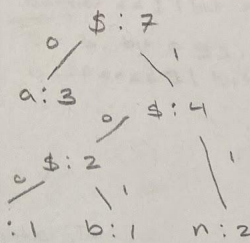 $ : 7
0 1
a : 3 $ : 4
0 1
$ : 2
0 1
: 1 b : 1 n : 2